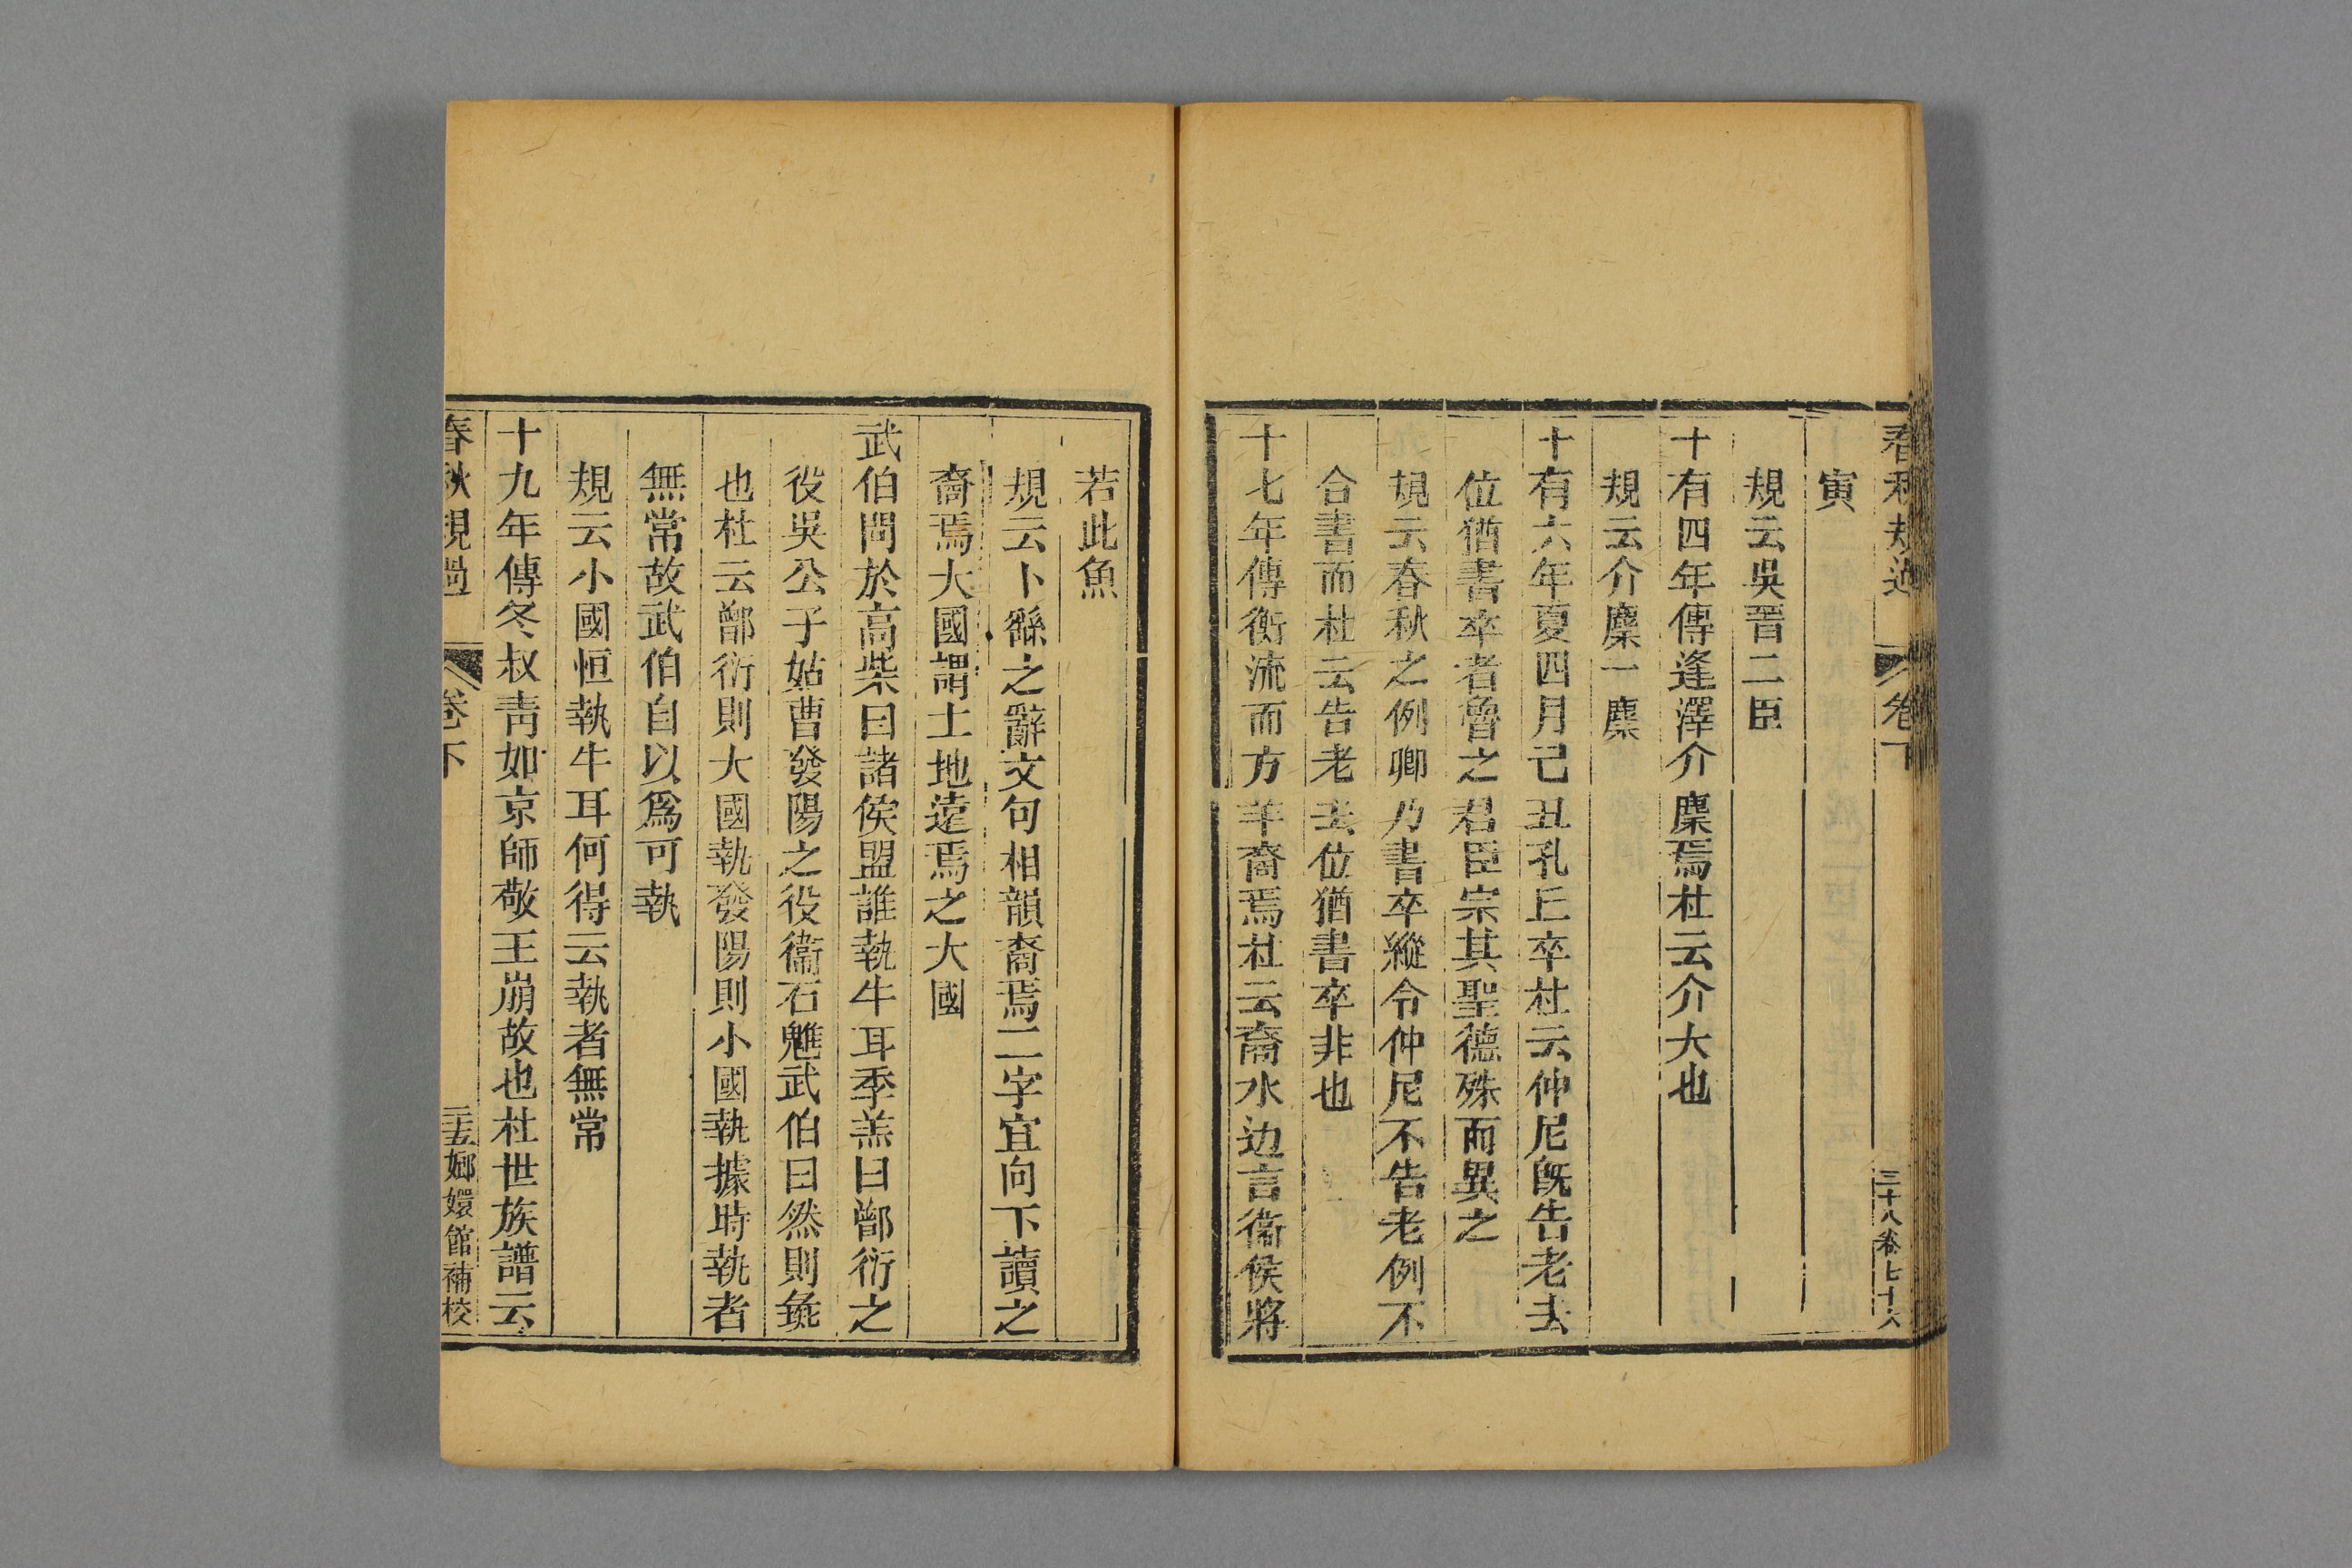 春秋規過 卷下 三十八卷七十六
寅
規云吳晉二臣
十有四年傳逢澤介麇焉杜云介大也
規云介麇一麇
十有六年夏四月己丑孔丘卒杜云仲尼旣告老去
位猶書卒者魯之君臣宗其聖德殊而異之
規云春秋之例卿乃書卒縱令仲尼不告老例不
合書而杜云告老去位猶書卒非也
十七年傳衡流而方羊裔焉杜云裔水边言衞侯將
若此魚
規云卜繇之辭文句相韻裔焉二字宜向下讀之
裔焉大國謂土地遠焉之大國
武伯問於高柴曰諸侯盟誰執牛耳季羔曰鄫衍之
役吳公子姑曹發陽之役衞石魋武伯曰然則彘
也杜云鄫衍則大國執發陽則小國執據時執者
無常故武伯自以爲可執
規云小國恒執牛耳何得云執者無常
十九年傳冬叔靑如京師敬王崩故也杜世族譜云
春秋規過 卷下 嫏嬛館補校